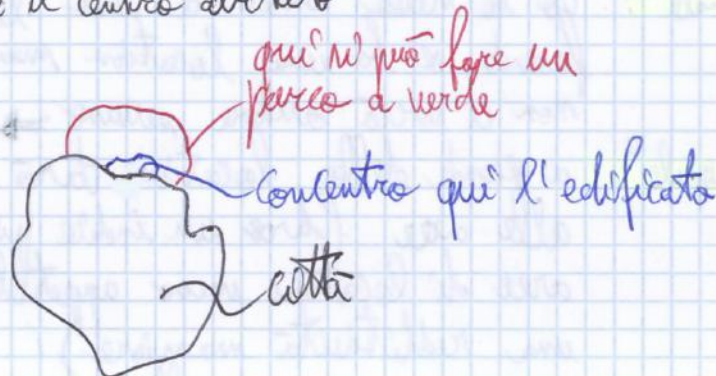 il centro
qui si può fare un
parco a verde
concentro qui l'edificato
città